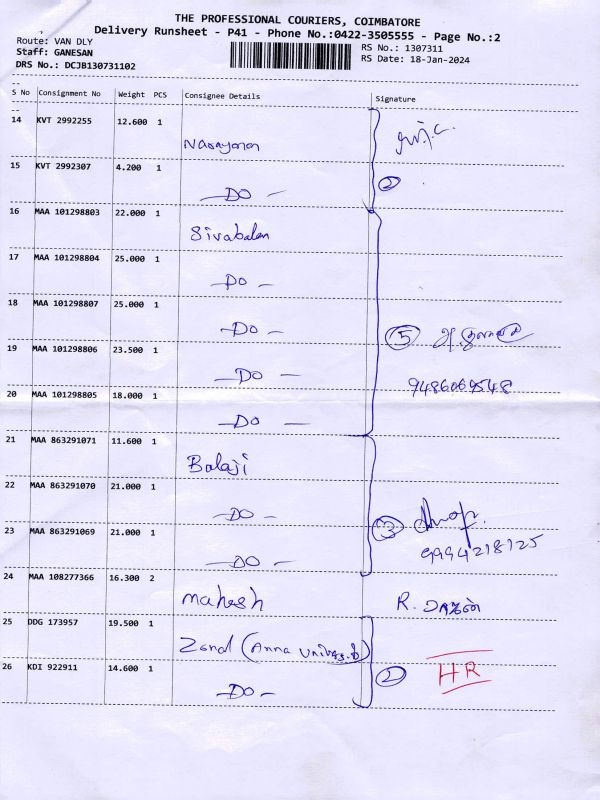 THE PROFESSIONAL COURIERS, COIMBATORE
Delivery Runsheet - P41 - Phone No.:0422-3505555 - Page No.:2
Route: VAN DLY
RS No.: 1307311
Staff: GANESAN
RS Date: 18-Jan-2024
DRS No.: DCJB130731102
S No Consignment No Weight PCS Consignee Details Signature
14 KVT 2992255 12.600 1 Narayanan
15 KVT 2992307 4.200 1 -DO- ②
16 MAA 101298803 22.000 1 Sivabalan
17 MAA 101298804 25.000 1 -DO-
18 MAA 101298807 25.000 1 -DO- ⑤
19 MAA 101298806 23.500 1 -DO- 9486069548
20 MAA 101298805 18.000 1 -DO-
21 MAA 863291071 11.600 1 Balaji
22 MAA 863291070 21.000 1 -DO- ③
23 MAA 863291069 21.000 1 -DO- 9994218125
24 MAA 108277366 16.300 2 Mahesh R.
25 DDG 173957 19.500 1 Zonal (Anna
26 KDI 922911 14.600 1 -DO- ② HR